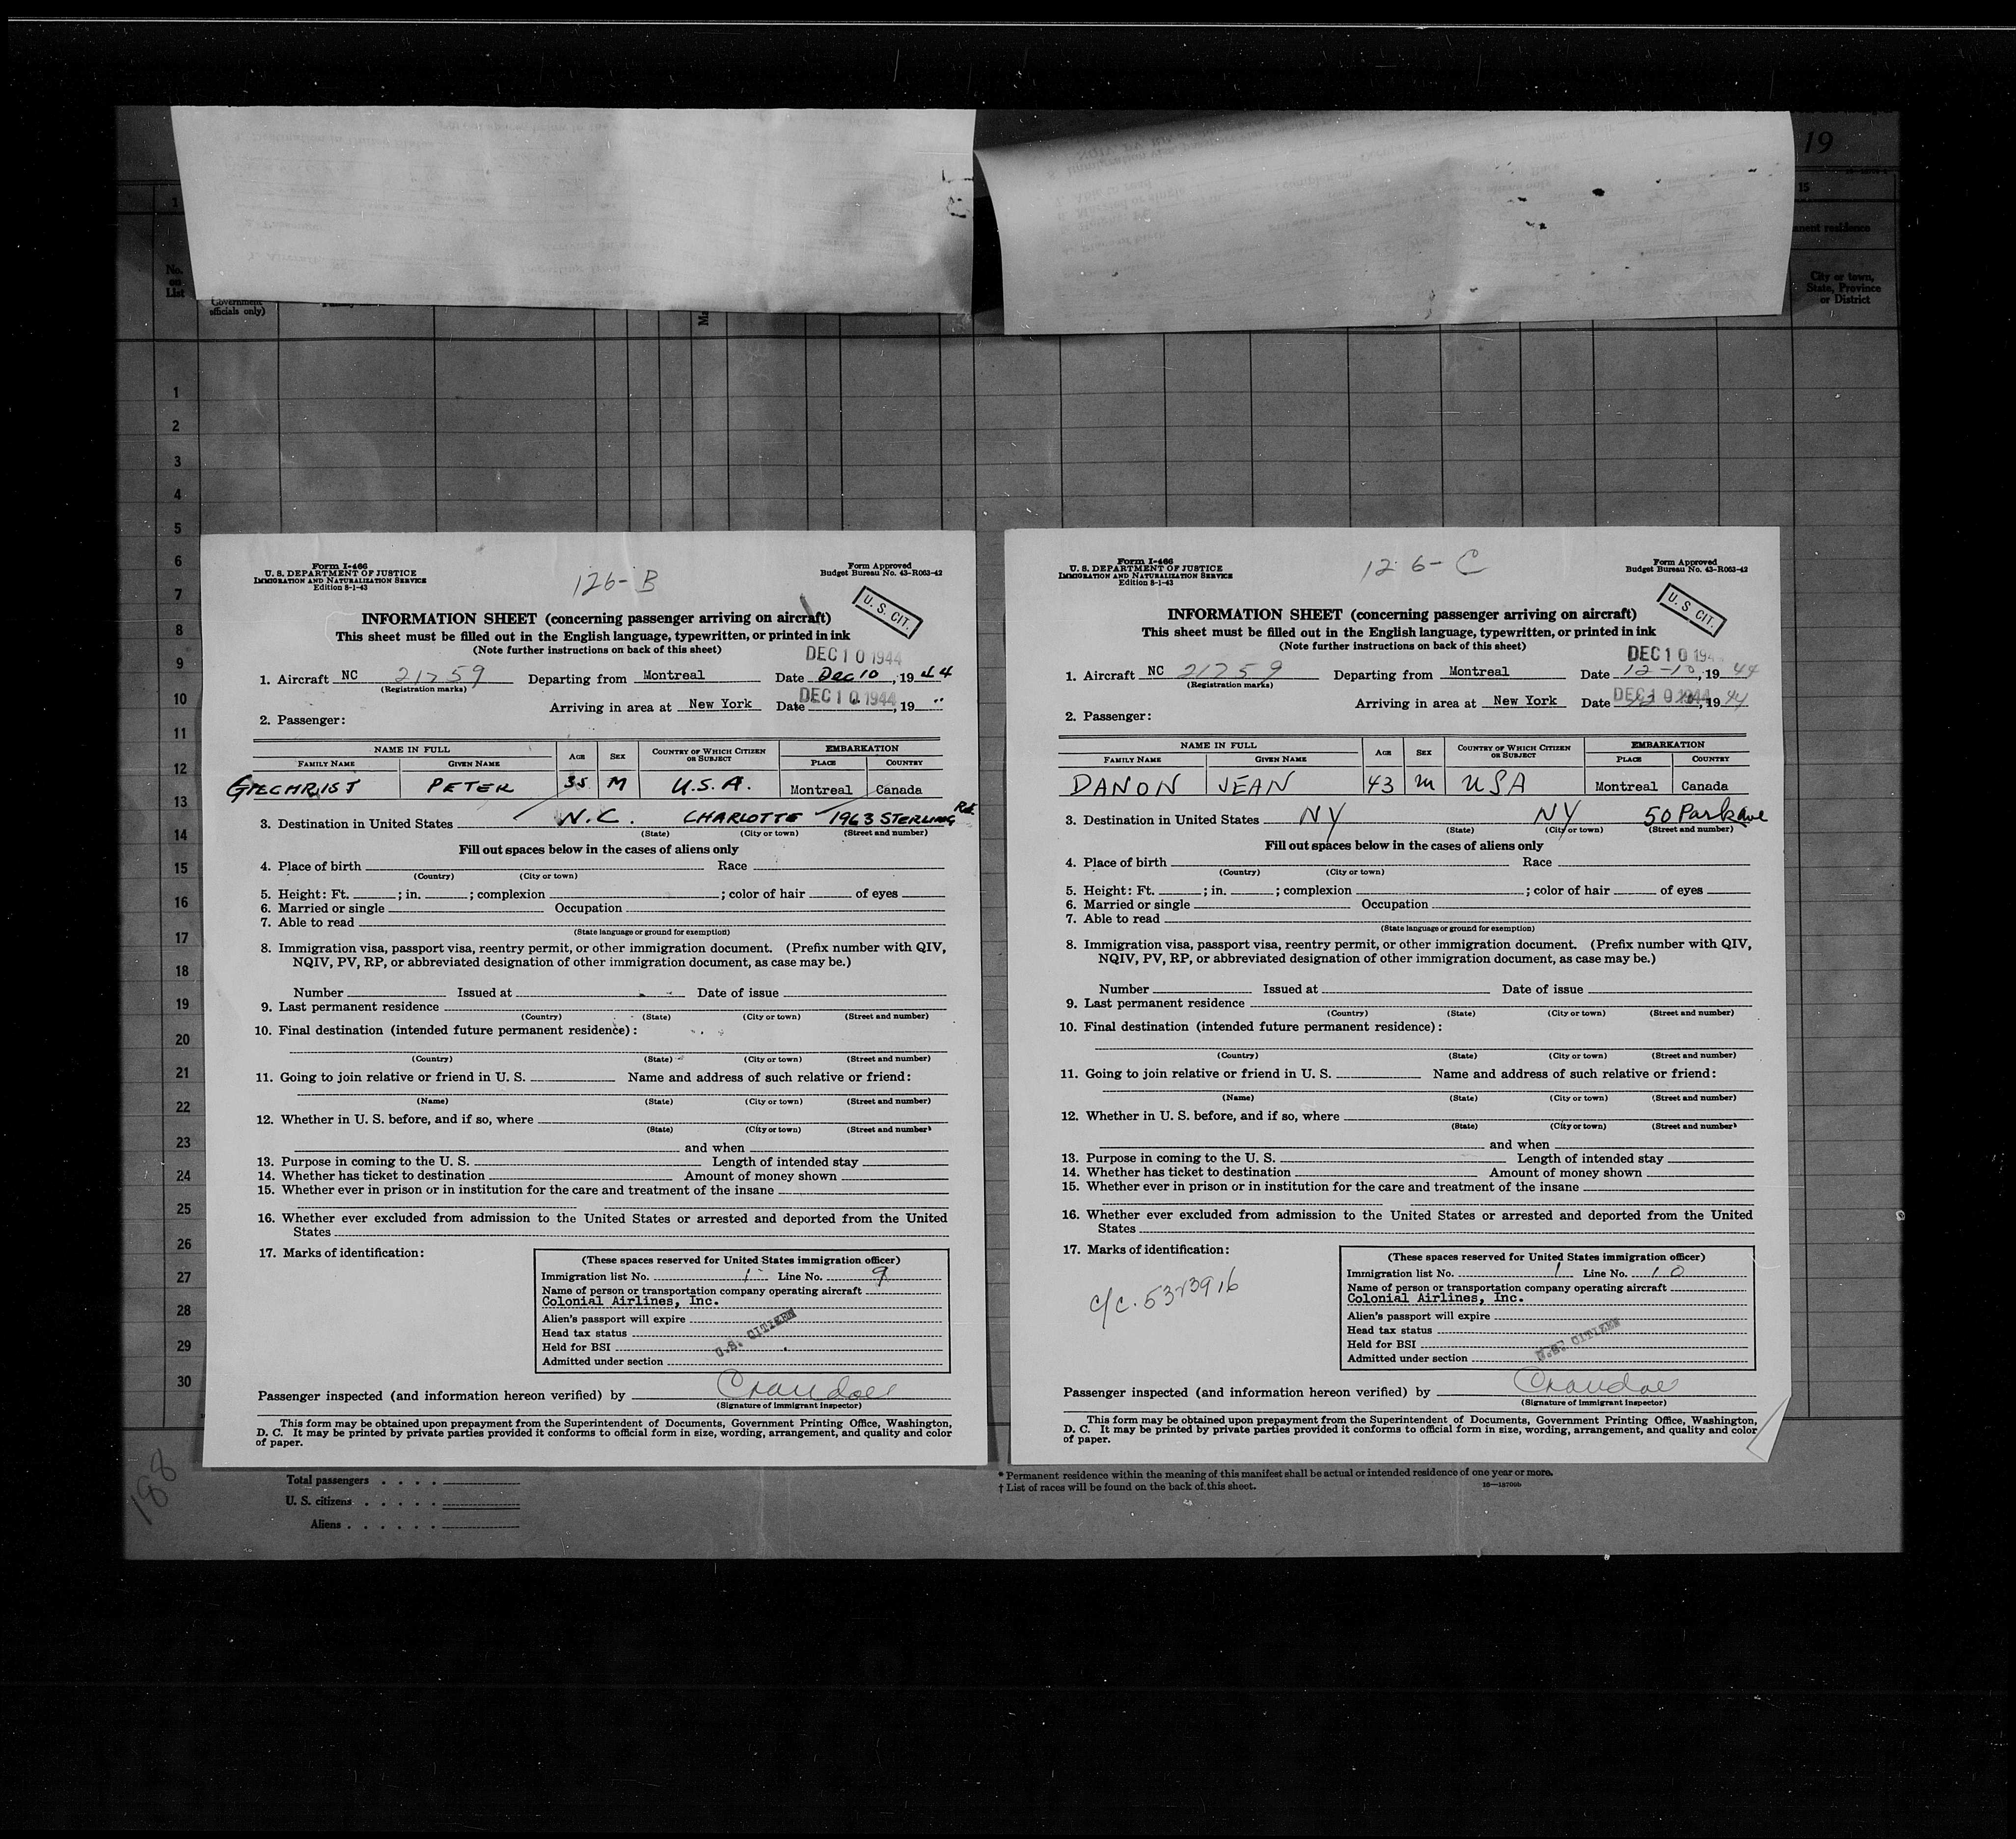 19
15
anent residence
1
No.
on
List
Government
officials only)
City or town,
State, Province
or District
1
2
3
4
5
6
7
8
9
10
11
12
13
14
15
16
17
18
19
20
21
22
23
24
25
26
27
28
29
30
Form I-466
U. S. DEPARTMENT OF JUSTICE
IMMIGRATION AND NATURALIZATION SERVICE
Edition 8-1-43
126-B
Form Approved
Budget Bureau No. 43-R063-42
U. S. CIT.
INFORMATION SHEET (concerning passenger arriving on aircraft)
This sheet must be filled out in the English language, typewritten, or printed in ink
(Note further instructions on back of this sheet)
DEC 10 1944
1. Aircraft NC 21759 Departing from Montreal Date Dec 10, 1944
(Registration marks)
DEC 10 1944
Arriving in area at New York Date , 19 "
2. Passenger:
NAME IN FULL AGE SEX COUNTRY OF WHICH CITIZEN OR SUBJECT EMBARKATION
FAMILY NAME GIVEN NAME PLACE COUNTRY
GILCHRIST PETER 35 M U.S.A. Montreal Canada
3. Destination in United States N.C. CHARLOTTE 1963 STERLING Rd.
(State) (City or town) (Street and number)
Fill out spaces below in the cases of aliens only
4. Place of birth Race
(Country) (City or town)
5. Height: Ft. ; in. ; complexion ; color of hair of eyes
6. Married or single Occupation
7. Able to read
(State language or ground for exemption)
8. Immigration visa, passport visa, reentry permit, or other immigration document. (Prefix number with QIV,
NQIV, PV, RP, or abbreviated designation of other immigration document, as case may be.)
Number Issued at Date of issue
9. Last permanent residence
(Country) (State) (City or town) (Street and number)
10. Final destination (intended future permanent residence):
(Country) (State) (City or town) (Street and number)
11. Going to join relative or friend in U. S. Name and address of such relative or friend:
(Name) (State) (City or town) (Street and number)
12. Whether in U. S. before, and if so, where
(State) (City or town) (Street and number)
and when
13. Purpose in coming to the U. S. Length of intended stay
14. Whether has ticket to destination Amount of money shown
15. Whether ever in prison or in institution for the care and treatment of the insane
16. Whether ever excluded from admission to the United States or arrested and deported from the United
States
17. Marks of identification:
(These spaces reserved for United States immigration officer)
Immigration list No. 1 Line No. 9
Name of person or transportation company operating aircraft
Colonial Airlines, Inc.
Alien's passport will expire
Head tax status
U.S. CITIZEN
Held for BSI
Admitted under section
Passenger inspected (and information hereon verified) by
(Signature of immigrant inspector)
This form may be obtained upon prepayment from the Superintendent of Documents, Government Printing Office, Washington,
D. C. It may be printed by private parties provided it conforms to official form in size, wording, arrangement, and quality and color
of paper.
Form I-466
U. S. DEPARTMENT OF JUSTICE
IMMIGRATION AND NATURALIZATION SERVICE
Edition 8-1-43
126-C
Form Approved
Budget Bureau No. 43-R063-42
U. S. CIT.
INFORMATION SHEET (concerning passenger arriving on aircraft)
This sheet must be filled out in the English language, typewritten, or printed in ink
(Note further instructions on back of this sheet)
DEC 10 194
1. Aircraft NC 21759 Departing from Montreal Date 12-10, 1944
(Registration marks)
DEC 10 1944
Arriving in area at New York Date , 1944
2. Passenger:
NAME IN FULL AGE SEX COUNTRY OF WHICH CITIZEN OR SUBJECT EMBARKATION
FAMILY NAME GIVEN NAME PLACE COUNTRY
DANON JEAN 43 m USA Montreal Canada
3. Destination in United States NY NY 50 Park ave
(State) (City or town) (Street and number)
Fill out spaces below in the cases of aliens only
4. Place of birth Race
(Country) (City or town)
5. Height: Ft. ; in. ; complexion ; color of hair of eyes
6. Married or single Occupation
7. Able to read
(State language or ground for exemption)
8. Immigration visa, passport visa, reentry permit, or other immigration document. (Prefix number with QIV,
NQIV, PV, RP, or abbreviated designation of other immigration document, as case may be.)
Number Issued at Date of issue
9. Last permanent residence
(Country) (State) (City or town) (Street and number)
10. Final destination (intended future permanent residence):
(Country) (State) (City or town) (Street and number)
11. Going to join relative or friend in U. S. Name and address of such relative or friend:
(Name) (State) (City or town) (Street and number)
12. Whether in U. S. before, and if so, where
(State) (City or town) (Street and number)
and when
13. Purpose in coming to the U. S. Length of intended stay
14. Whether has ticket to destination Amount of money shown
15. Whether ever in prison or in institution for the care and treatment of the insane
16. Whether ever excluded from admission to the United States or arrested and deported from the United
States
17. Marks of identification:
c/c. 5373916
(These spaces reserved for United States immigration officer)
Immigration list No. 1 Line No. 10
Name of person or transportation company operating aircraft
Colonial Airlines, Inc.
Alien's passport will expire
Head tax status
U.S. CITIZEN
Held for BSI
Admitted under section
Passenger inspected (and information hereon verified) by
(Signature of immigrant inspector)
This form may be obtained upon prepayment from the Superintendent of Documents, Government Printing Office, Washington,
D. C. It may be printed by private parties provided it conforms to official form in size, wording, arrangement, and quality and color
of paper.
188
Total passengers . . . .
U. S. citizens . . . . .
Aliens . . . . . .
* Permanent residence within the meaning of this manifest shall be actual or intended residence of one year or more.
† List of races will be found on the back of this sheet.